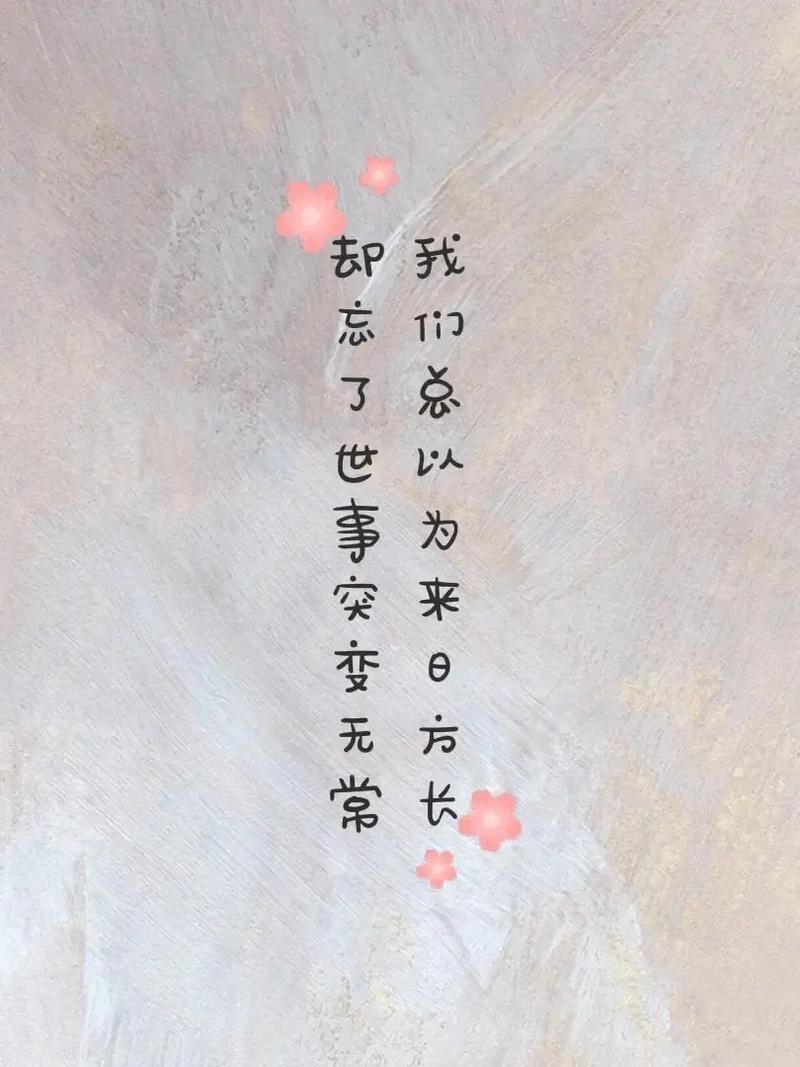 我们总以为来日方长
却忘了世事突变无常